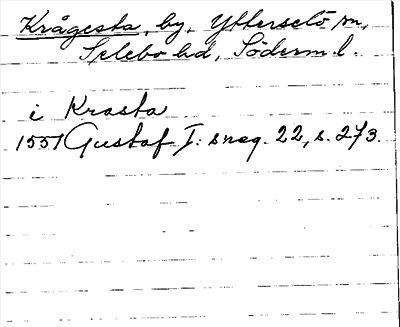 Krågesta, by, Ytterselö sn,
Selebo hd, Söderm. l.
i Krasta
1551 Gustaf I: s reg. 22, s. 273.